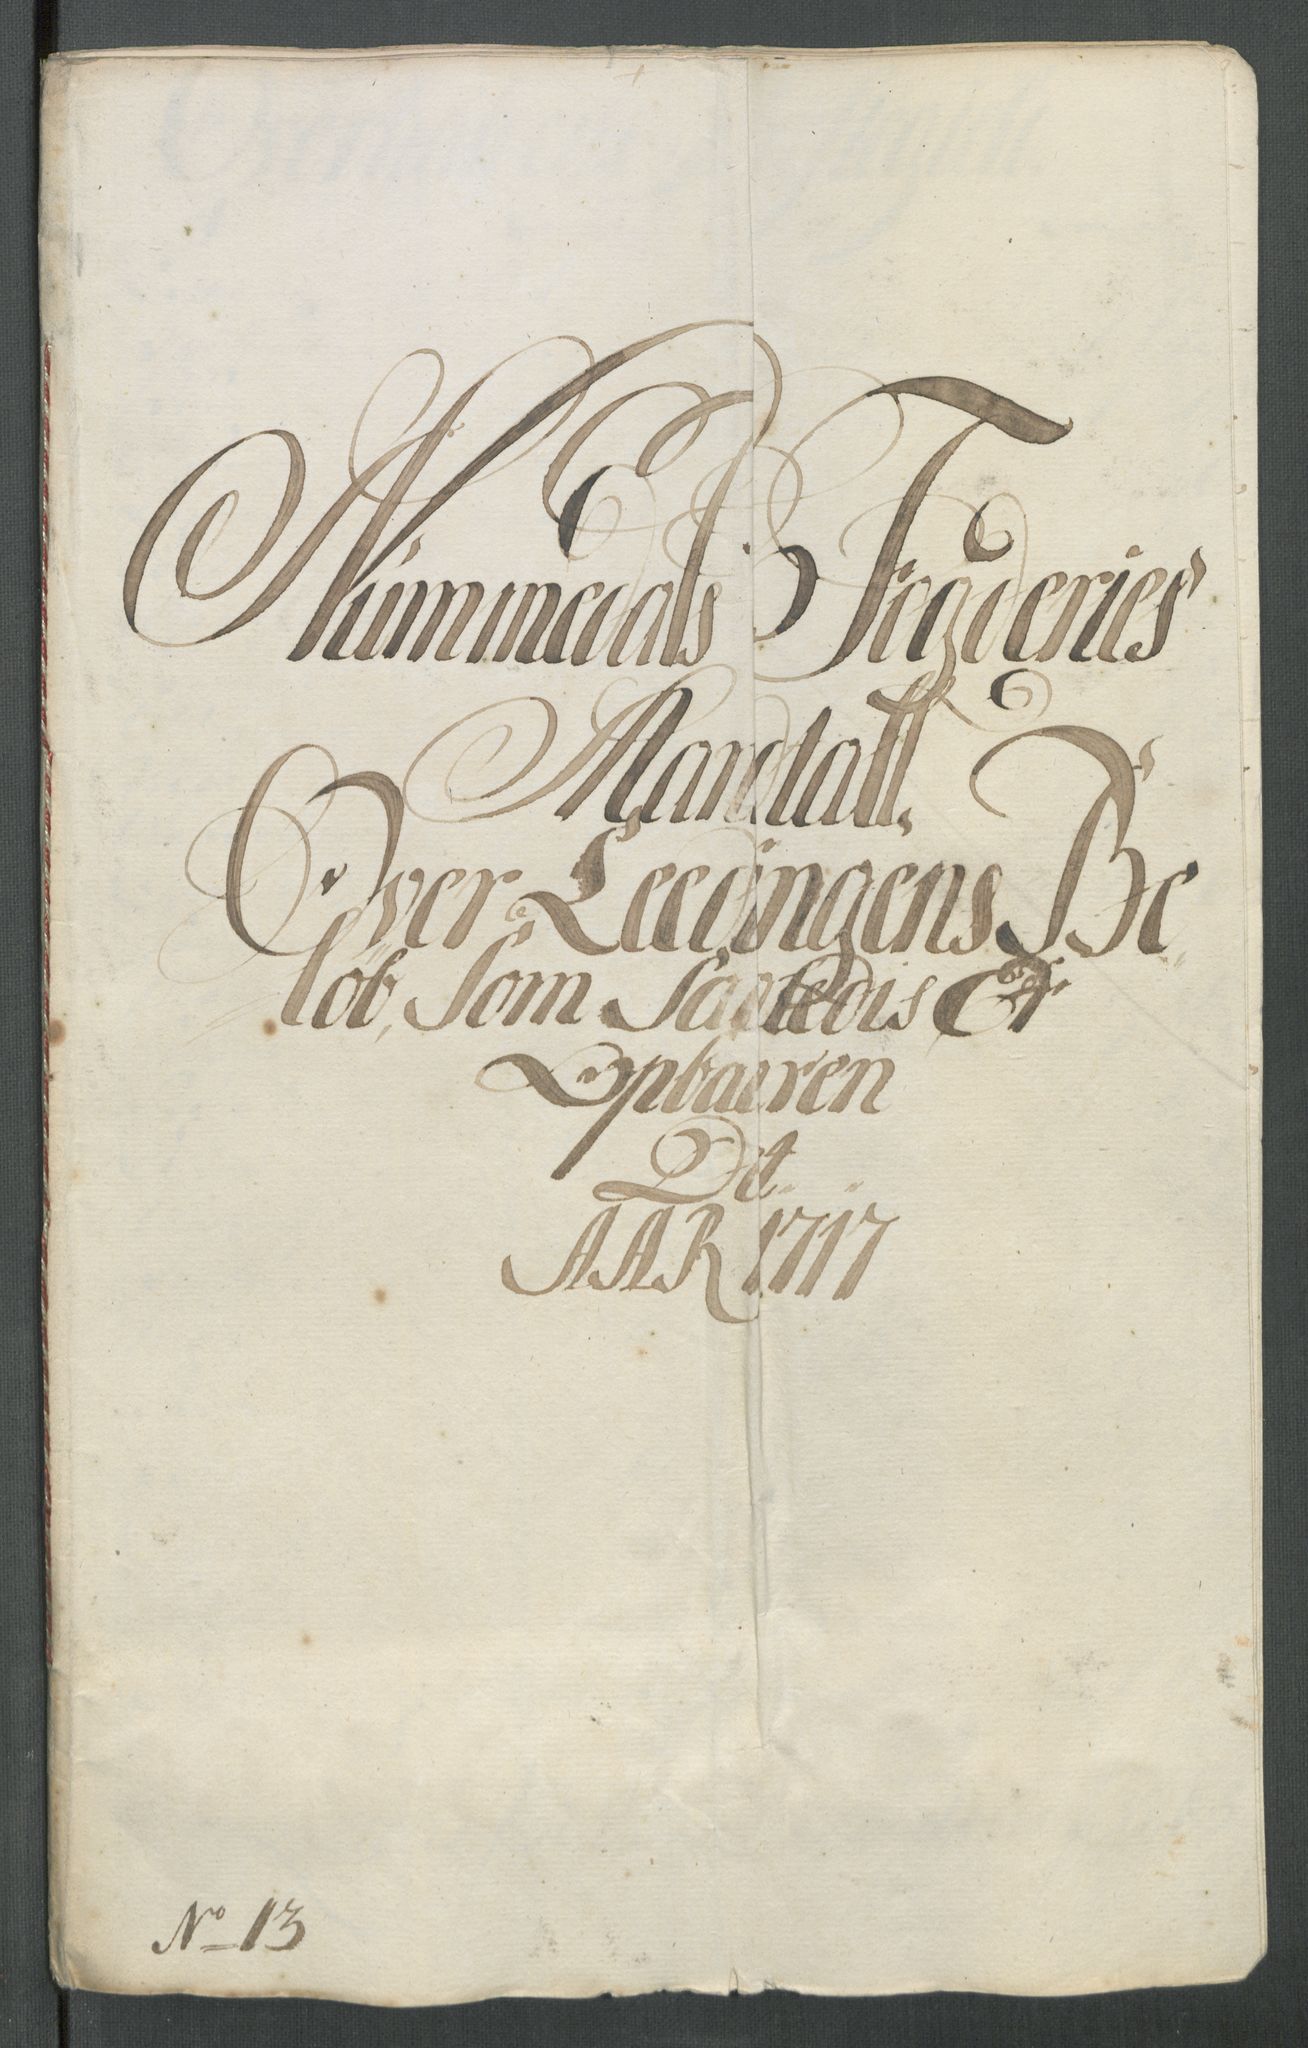 Nummedals Fogderies
Mandtall,
Over Leedingens Be
löb, Som Samledis Er
Opbaaren
Dt
AAR 1717
No 13